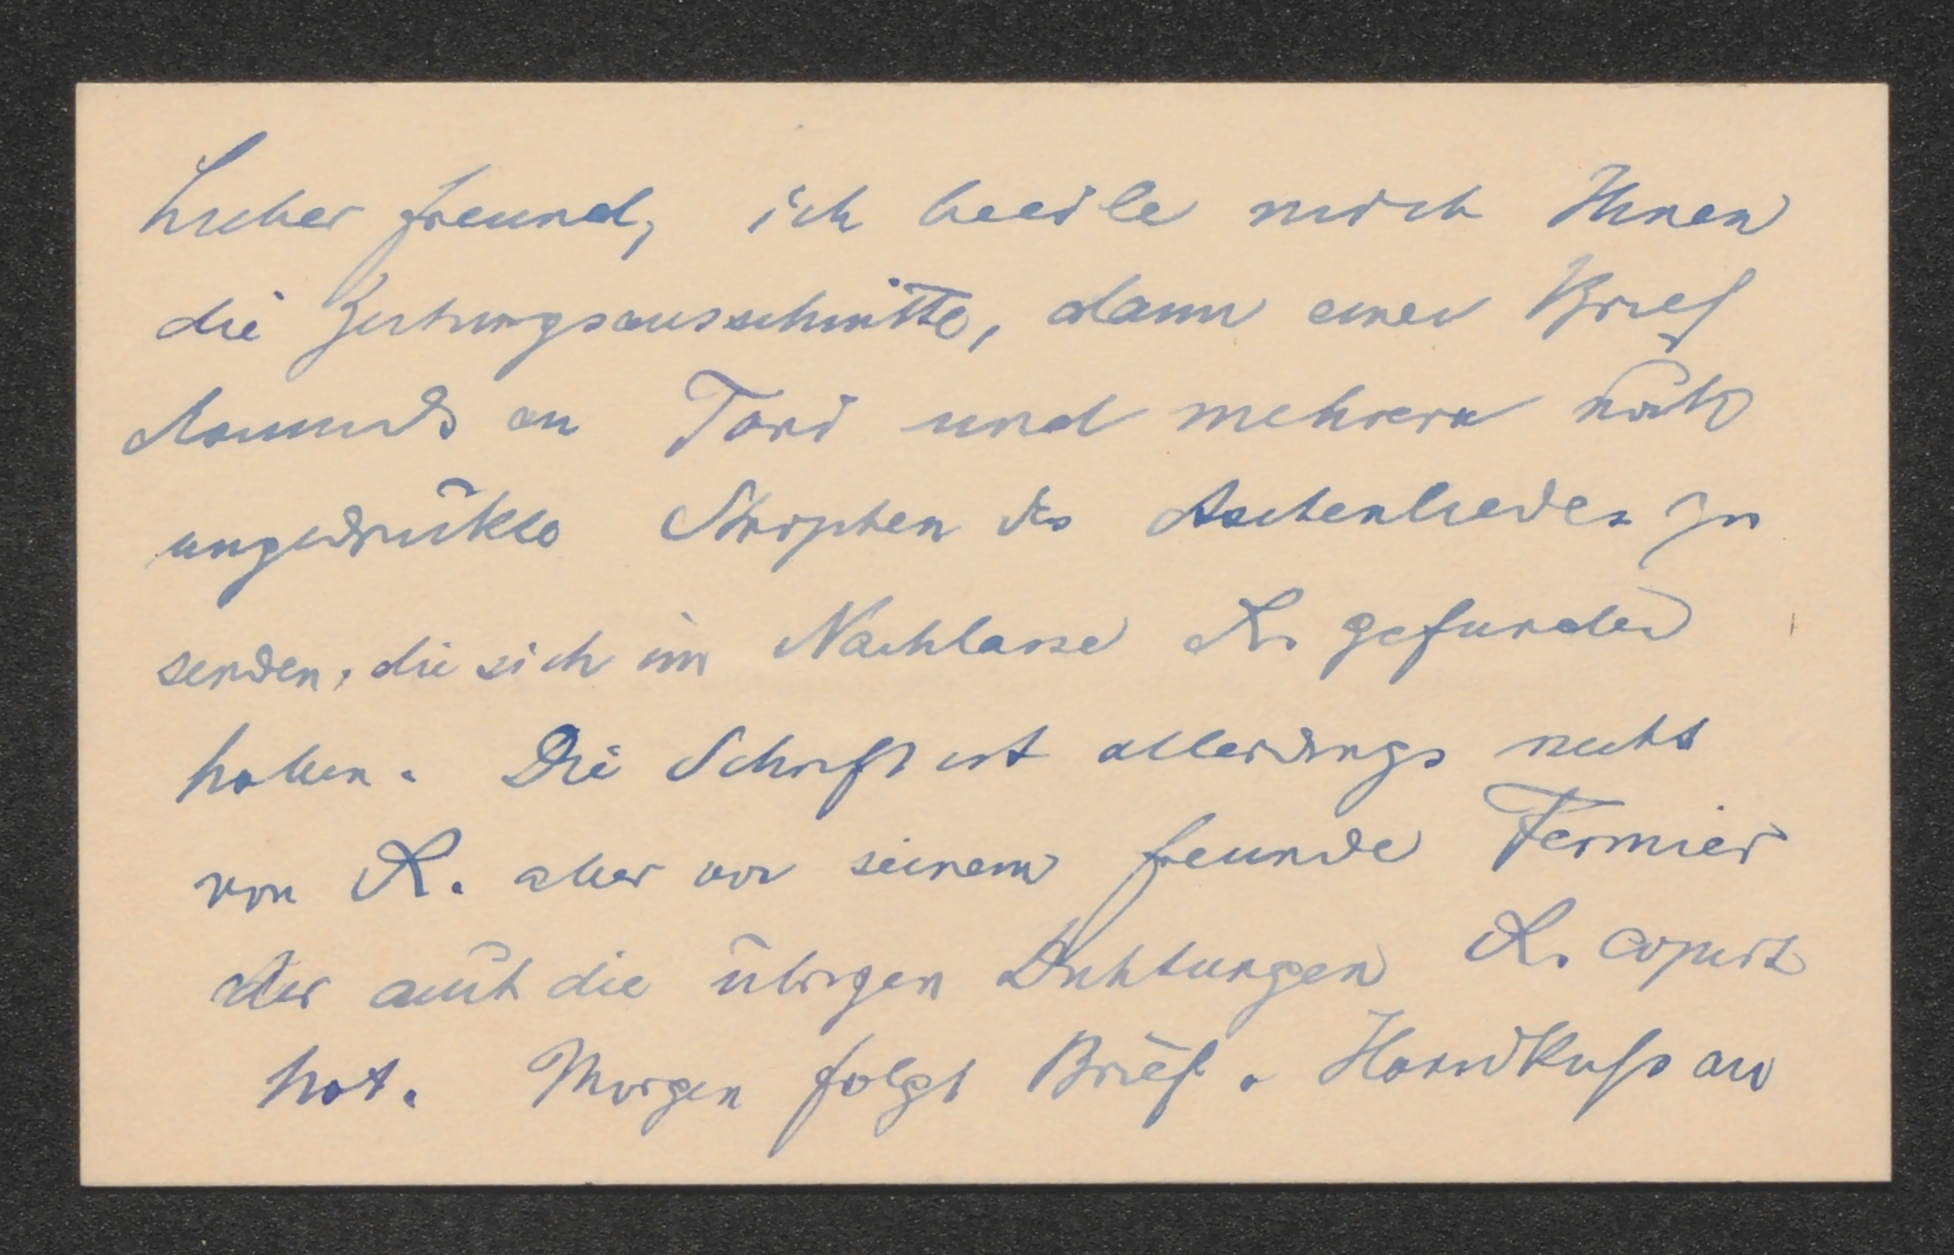 Lieber Freund, ich beeile mich Ihnen
die Zeitungsausschnitte, dann einen Brief
an Toni und mehrere noch
ungedrukte Strophen des Aschenliedes zu
senden, die sich im Nachlasse R. gefunden
haben. Die Schrift ist allerdings nicht
von R. aber von seinem Freunde Fermier
der auch die übrigen Dichtungen R. copirt
hat. Morgen folgt Brief. Handkuß an